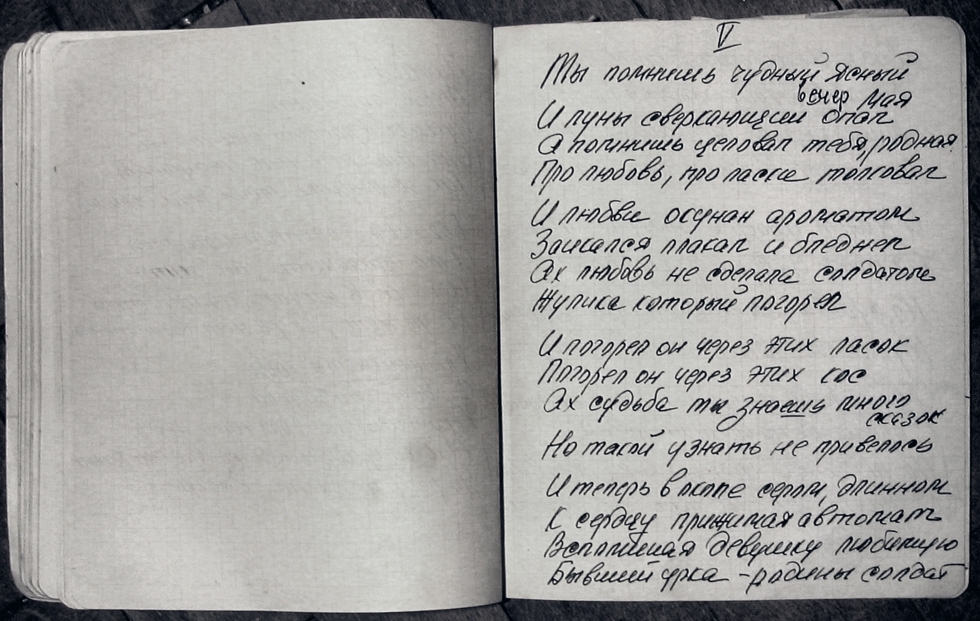 V
Ты помнишь чудный ясный
вечер мая
И луны сверкающий опал
А помнишь целовал тебя, родная
Про любовь, про ласки толковал
И любви окунан ароматом
Заикался плакал и бледнел
Ах любовь не сделала солдатом
Жулика который погорел
И погорел он через этих ласок
Погорел он через этих кос
Ах судьба ты знаешь много
сказок
Но такой узнать не привелось
И теперь в окопе сером, длинном
К сердцу прижимая автомат
Вспоминая девушку любимую
Бывший урка - родины солдат